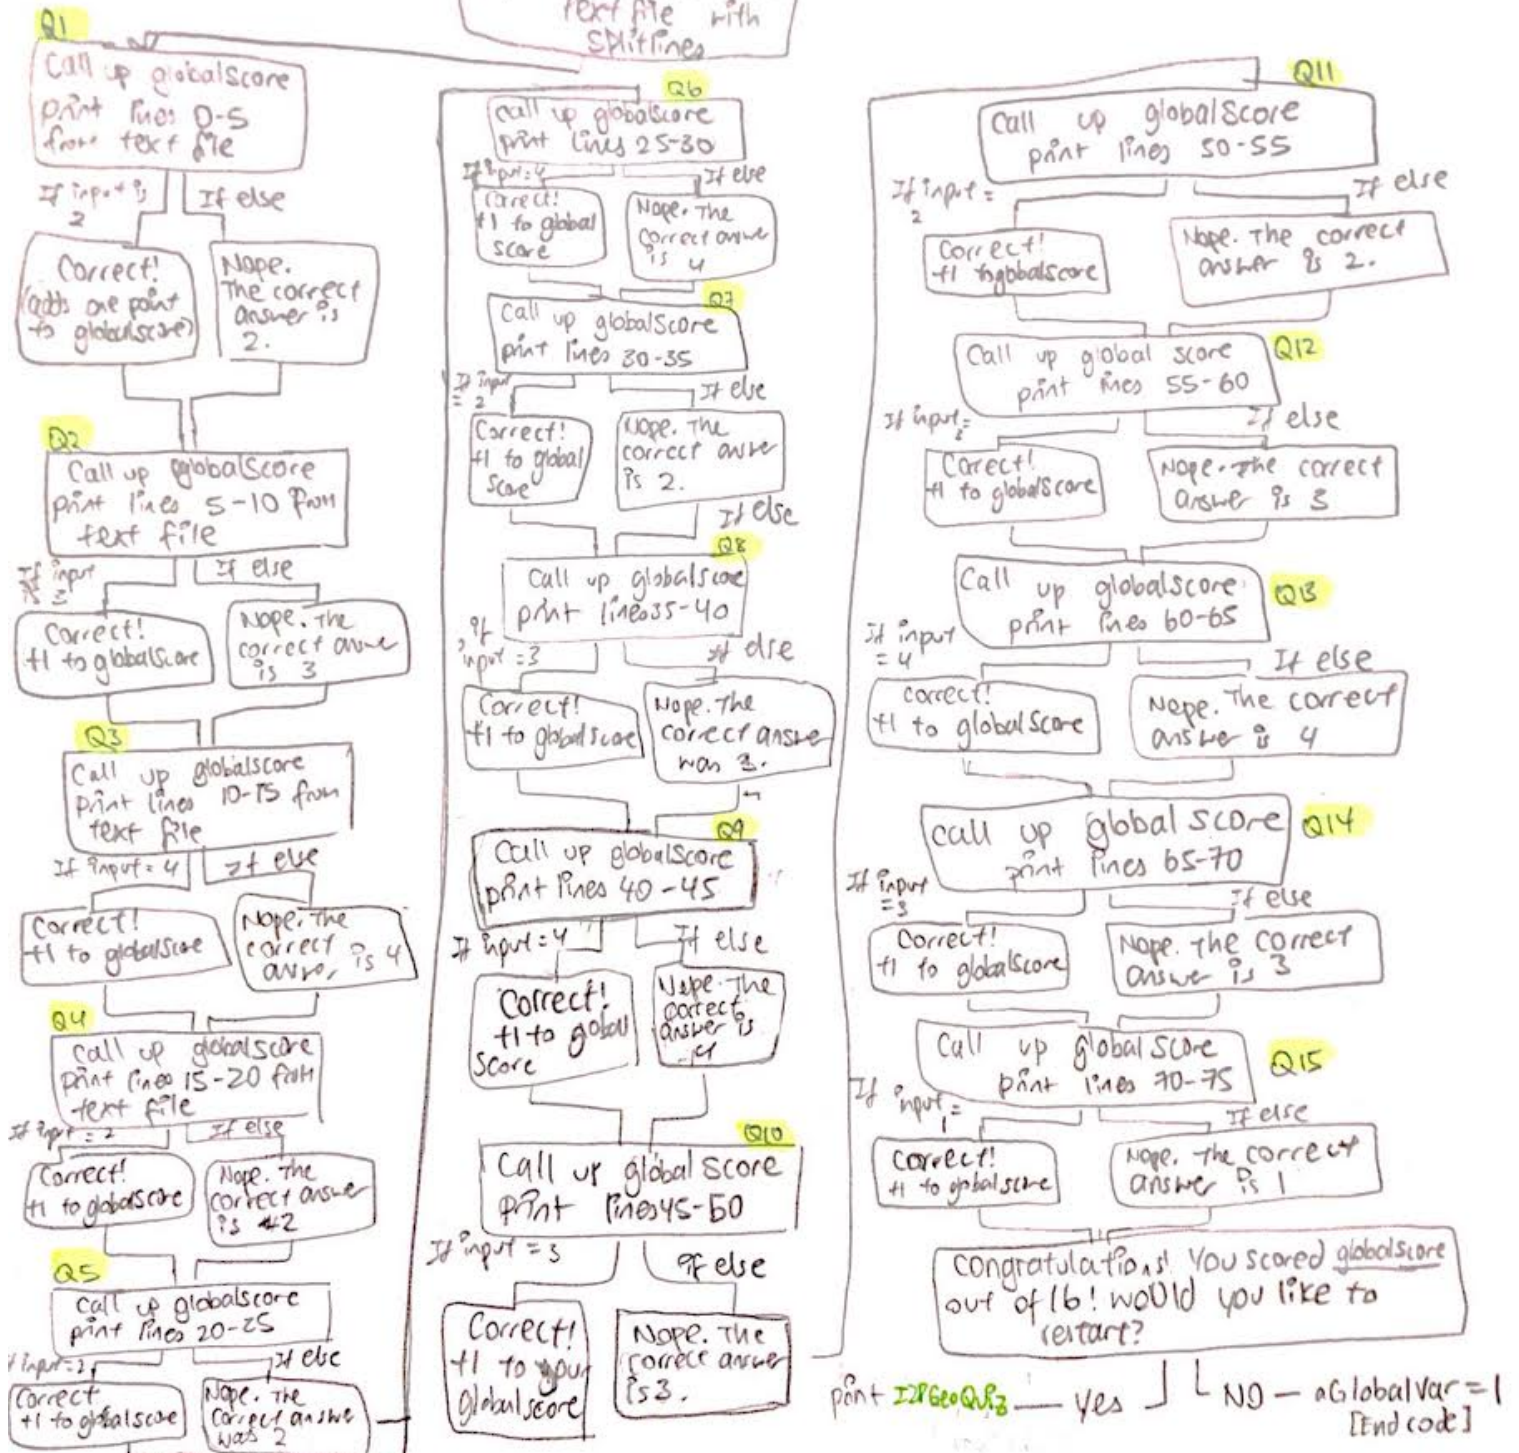 text file with
splitlines
Q1
Call up globalScore
print lines 0-5
from text file
If input is
2
If else
Correct!
(adds one point
to globalscore)
Nope.
The correct
answer is
2.
Q2
Call up globalScore
print lines 5-10 from
text file
If input
is 3
If else
Correct!
+1 to globalScore
Nope. The
correct answer
is 3
Q3
Call up globalscore
print lines 10-15 from
text file
If input = 4
If else
Correct!
+1 to globalScore
Nope. The
correct
answer is 4
Q4
Call up globalscore
print lines 15-20 from
text file
If input = 2
If else
Correct!
+1 to globalscore
Nope. The
correct answer
is 2
Q5
Call up globalscore
print lines 20-25
If else
Correct
+1 to globalscore
Nope. The
correct answer
was 2
Q6
Call up globalscore
print lines 25-30
If input=4
If else
Correct!
+1 to global
score
Nope. The
correct answer
is 4
Q7
Call up globalScore
print lines 30-35
If input
= 2
If else
Correct!
+1 to global
Score
Nope. The
correct answer
is 2.
If else
Q8
Call up globalscore
print lines 35-40
if
input = 3
If else
Correct!
+1 to globalscore
Nope. The
correct answer
was 3.
Q9
Call up globalscore
print lines 40-45
If input = 4
If else
Correct!
+1 to global
score
Nope. The
correct
answer is
4
Q10
Call up global score
print lines 45-50
If input = 3
if else
Correct!
+1 to your
globalscore
Nope. The
correct answer
is 3.
Q11
Call up globalScore
print lines 50-55
If input =
2
If else
Correct!
+1 to globalscore
Nope. The correct
answer is 2.
Q12
Call up global score
print lines 55-60
If input =
If else
Correct!
+1 to globalScore
Nope. The correct
answer is 3
Q13
Call up globalscore
print lines 60-65
If input
= 4
If else
correct!
+1 to globalScore
Nope. The correct
answer is 4
Q14
Call up global score
print lines 65-70
If input
=3
If else
Correct!
+1 to globalScore
Nope. The correct
answer is 3
Q15
Call up global score
print lines 70-75
If
input =
1
If else
Correct!
+1 to globalscore
Nope. The correct
answer is 1
Congratulations! You scored globalscore
out of 16! would you like to
restart?
print
Yes
NO — aGlobalVar = 1
[End code]